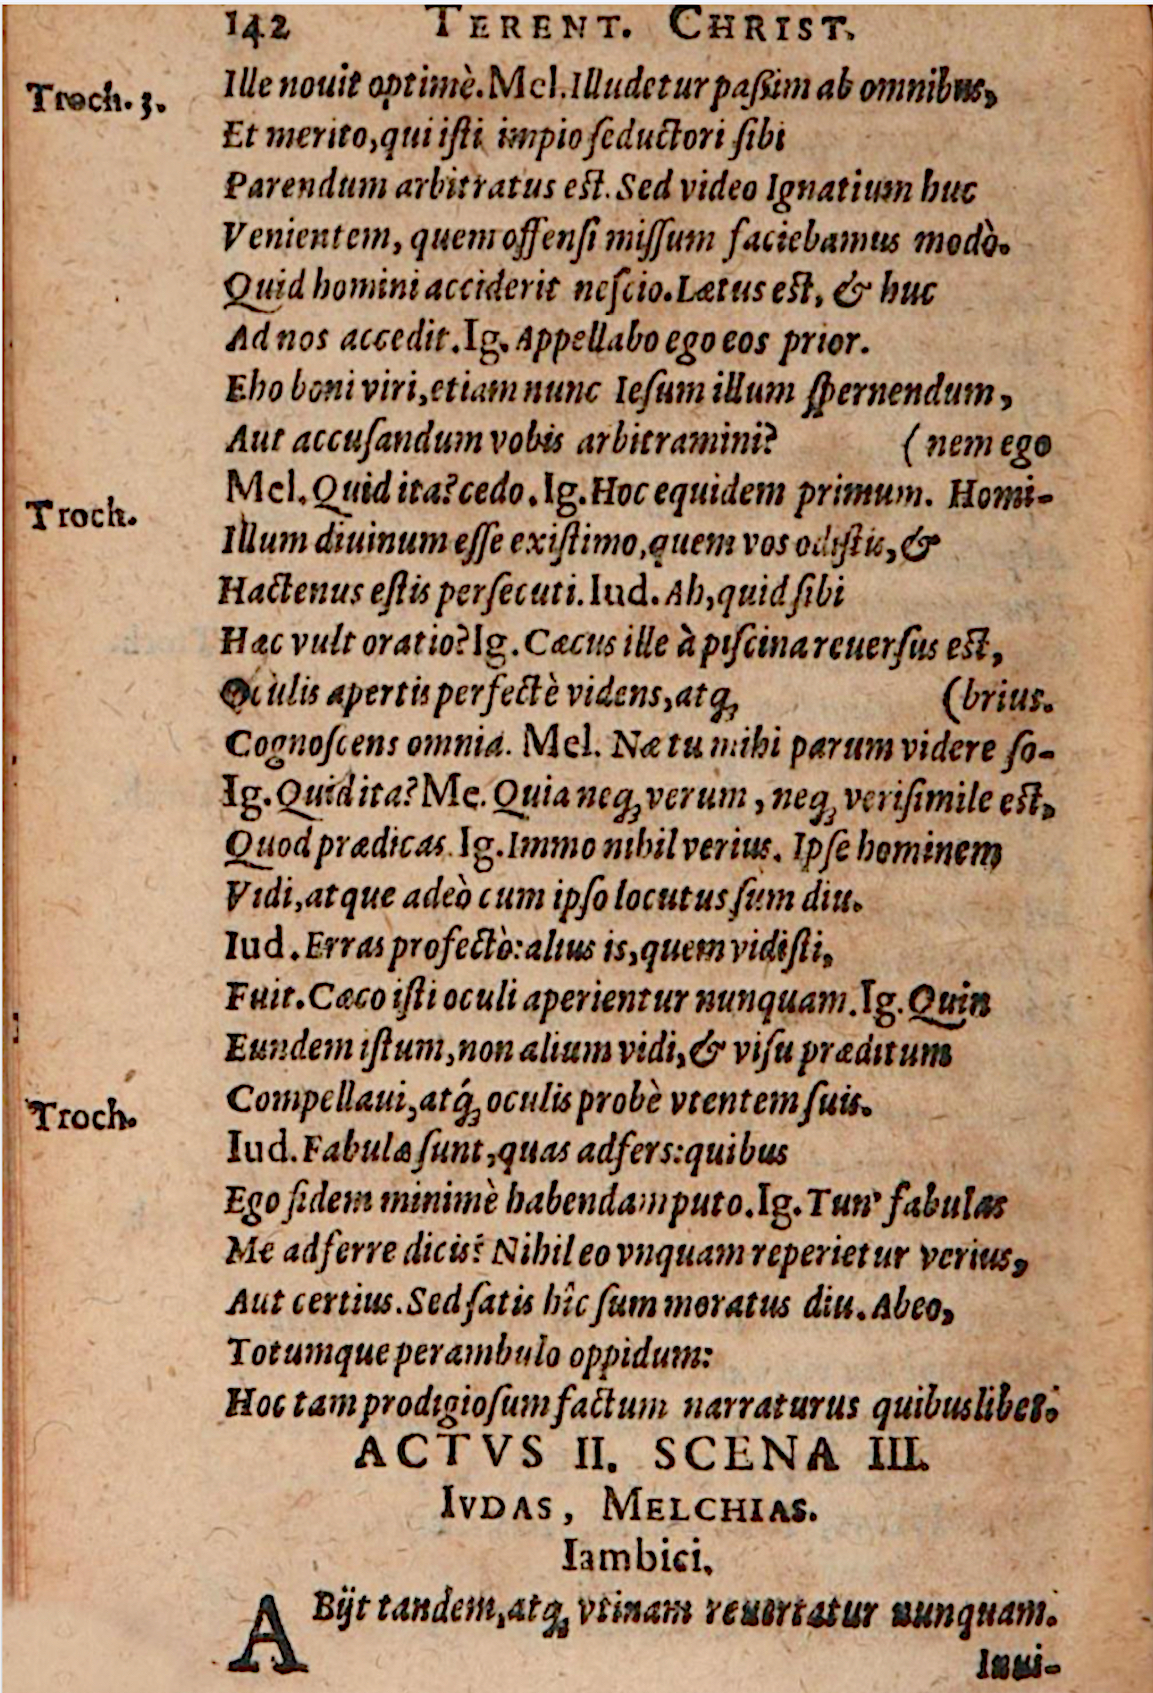 142 TERENT. CHRIST.
Troch. 3. Ille nouit optimè. Mel. Illudetur paſsim ab omnibus,
Et merito, qui iſti impio ſeductori ſibi
Parendum arbitratus eſt. Sed video Ignatium huc
Venientem, quem offenſi miſſum faciebamus modò.
Quid homini acciderit neſcio. Lætus eſt, & huc
Ad nos accedit. Ig. Appellabo ego eos prior.
Eho boni viri, etiam nunc Ieſum illum ſpernendum,
Aut accuſandum vobis arbitramini? (nem ego
Mel. Quid ita? cedo. Ig. Hoc equidem primum. Homi-
Troch. Illum diuinum eſſe exiſtimo, quem vos odiſtis, &
Hactenus eſtis perſecuti. Iud. Ah, quid ſibi
Hæc vult oratio? Ig. Cæcus ille à piſcina reuerſus eſt,
Oculis apertis perfectè videns, atq; (brius.
Cognoſcens omnia. Mel. Næ tu mihi parum videre ſo-
Ig. Quid ita? Me. Quia neq; verum, neq; veriſimile eſt,
Quod prædicas. Ig. Immo nihil verius. Ipſe hominem
Vidi, atque adeò cum ipſo locutus ſum diu.
Iud. Erras profectò: alius is, quem vidiſti,
Fuit. Cæco iſti oculi aperientur nunquam. Ig. Quin
Eundem iſtum, non alium vidi, & viſu præditum
Troch. Compellaui, atq́; oculis probè vtentem ſuis.
Iud. Fabulæ ſunt, quas adfers: quibus
Ego fidem minimè habendam puto. Ig. Tun' fabulas
Me adferre dicis? Nihil eo vnquam reperietur verius,
Aut certius. Sed ſatis hîc ſum moratus diu. Abeo,
Totumque perambulo oppidum:
Hoc tam prodigioſum factum narraturus quibuslibet.
ACTVS II. SCENA III.
IVDAS, MELCHIAS.
Iambici.
ABijt tandem, atq; vtinam reuertatur nunquam.
Inui-